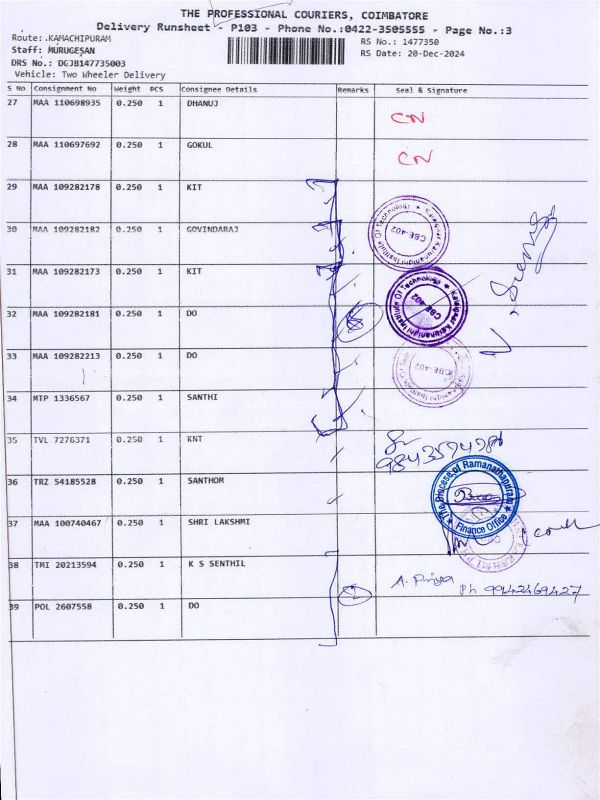 THE PROFESSIONAL COURIERS, COIMBATORE
Delivery Runsheet - P103 - Phone No.:0422-3505555 - Page No.:3
Route: KAMACHIPURAM
RS No.: 1477350
Staff: MURUGESAN
RS Date: 20-Dec-2024
DRS No.: DGJB147735003
Vehicle: Two Wheeler Delivery
S No Consignment No Weight PCS Consignee Details Remarks Seal & Signature
27 MAA 110698935 0.250 1 DHANUJ CN
28 MAA 110697692 0.250 1 GOKUL CN
29 MAA 109282178 0.250 1 KIT
30 MAA 109282182 0.250 1 GOVINDARAJ
31 MAA 109282173 0.250 1 KIT
32 MAA 109282181 0.250 1 DO
33 MAA 109282213 0.250 1 DO
34 MTP 1336567 0.250 1 SANTHI
35 TVL 7276371 0.250 1 KNT
36 TRZ 54185528 0.250 1 SANTHOM
37 MAA 100740467 0.250 1 SHRI LAKSHMI
38 TMI 20213594 0.250 1 K S SENTHIL
A. Priya Ph 9942469427
39 POL 2607558 0.250 1 DO
Kalaignar Karunanidhi Institute Of Technology
CBE-402
Kalaignar Karunanidhi Institute Of Technology
CBE-402
CBE-402
The Diocese of Ramanathapuram
Finance Office